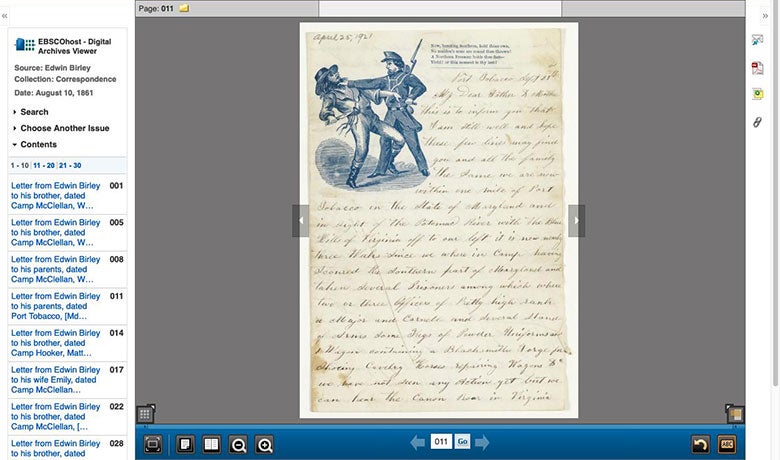 Page: 011
«
»
EBSCOhost - Digital
Archives Viewer
Source: Edwin Birley
Collection: Correspondence
Date: August 10, 1861
Search
Choose Another Issue
Contents
1 - 10 | 11 - 20 | 21 - 30
Letter from Edwin Birley 001
to his brother, dated
Camp McClellan, W...
Letter from Edwin Birley 005
to his brother, dated
Camp McClellan, W...
Letter from Edwin Birley 008
to his parents, dated
Camp McClellan, W...
Letter from Edwin Birley 011
to his parents, dated
Port Tobacco, [Md...
Letter from Edwin Birley 014
to his brother, dated
Camp Hooker, Matt...
Letter from Edwin Birley 017
to his wife Emily, dated
Camp McClellan...
Letter from Edwin Birley 022
to his brother, dated
Camp McClellan, [...
Letter from Edwin Birley 028
to his brother, dated
April 25, 1921
Now, bragging Southron, hold thine own,
No maiden's arm is round thee thrown!
A Northern Freeman holds thee fast—
Yield! or this moment is thy last!
Port Tobacco Sept
My Dear Father & Mother
This is to inform you that
I am still well and hope
these few lines may find
you and all the family
the Same we are now
within one mile of Port
Tobacco in the State of Maryland and
in Sight of the Potomac River with the Blue
Hills of Virginia off to our left it is now nearly
three Weeks since we where in Camp having
Scoured the Southern part of Maryland and
taken Several Prisoners among which where
two or three Officers of Pretty high rank
a Major and Cornele and Several Stand
of Arms Some Kegs of Powder Uniforms and
Wagon containing a Blacksmiths Forge for
Shoeing Cavelry Horses repairing Wagons &c
we have not seen any Action yet but we
can hear the Canon Roar in Virginia
011 Go
ABC